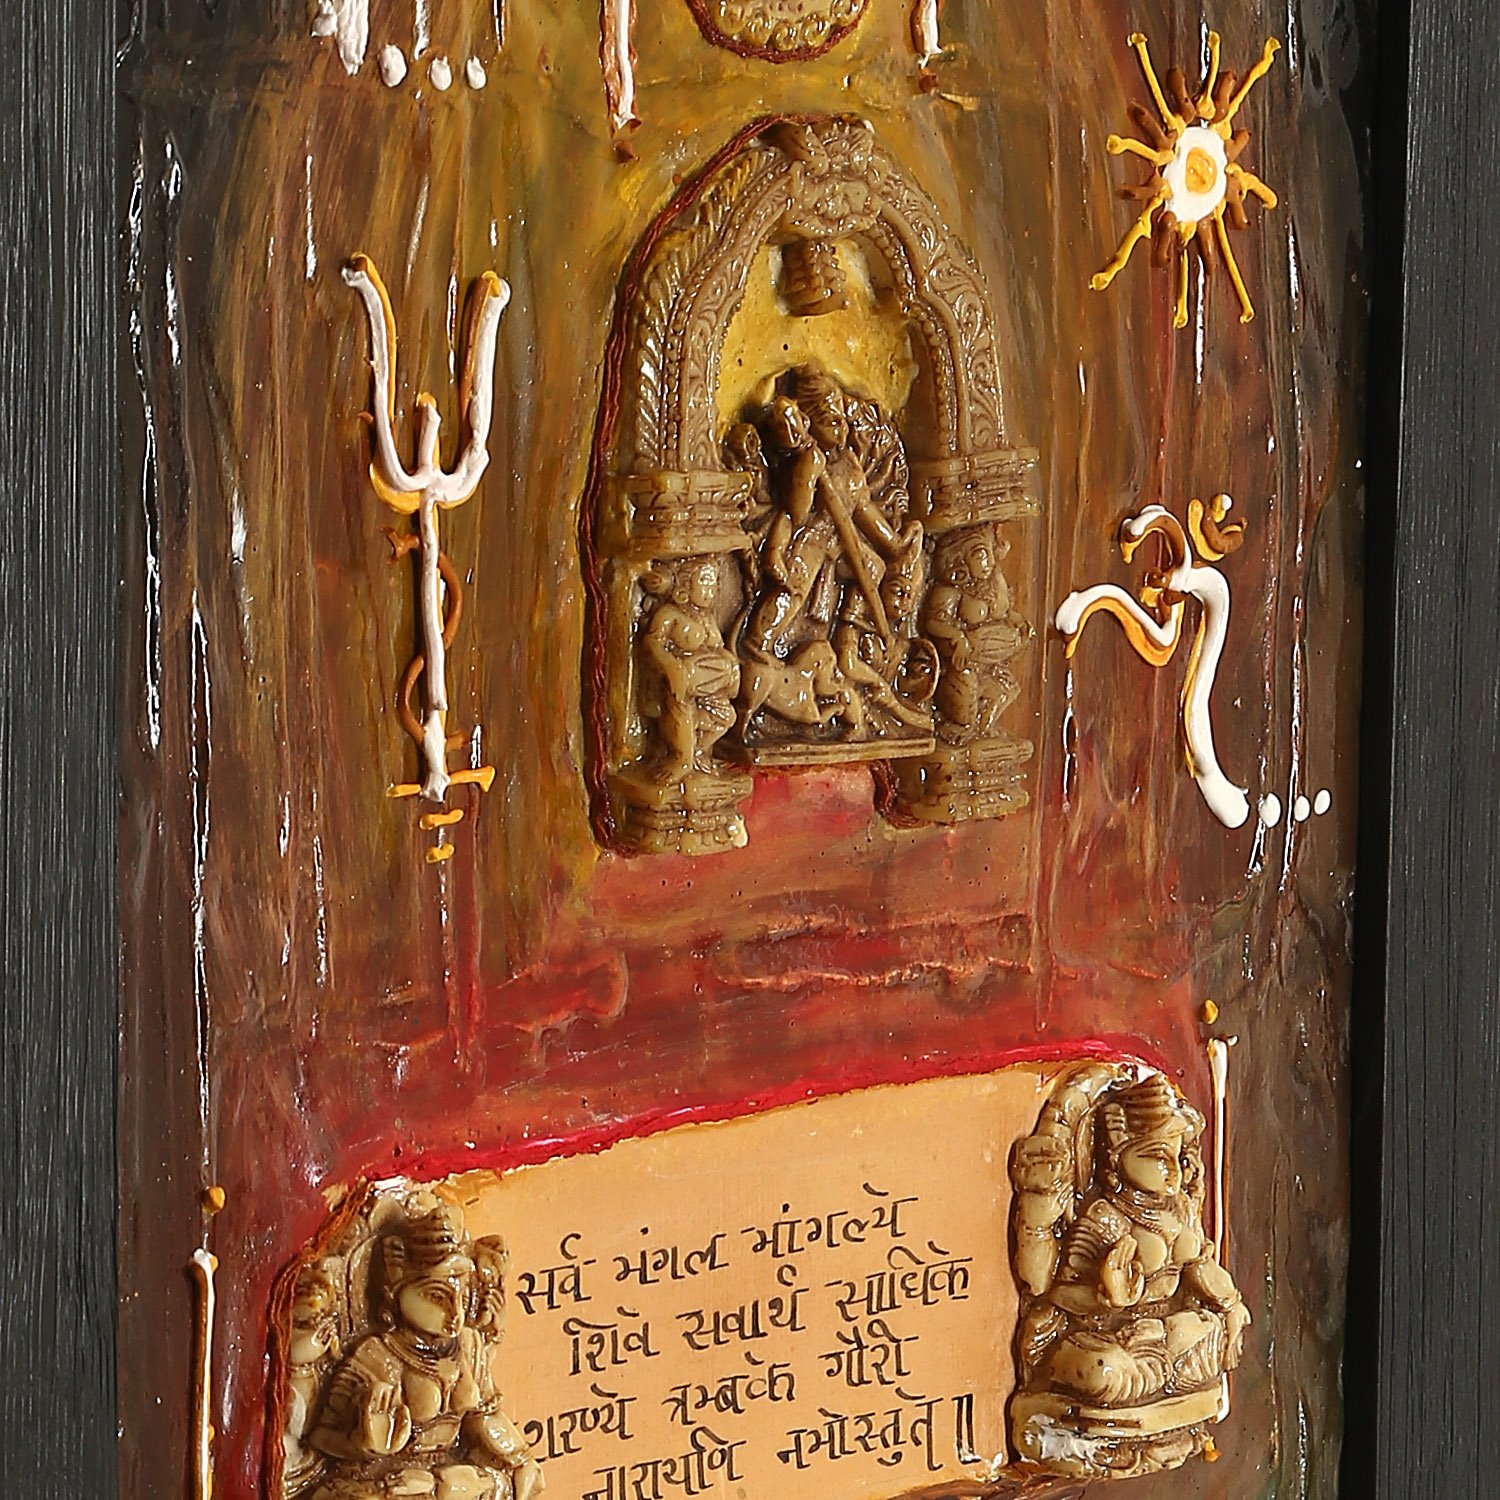 ॐ
सर्व मंगल मांगल्ये
शिवे सवार्थ साधिके
शरण्ये त्रम्बके गौरी
नारायणि नमोस्तुते॥